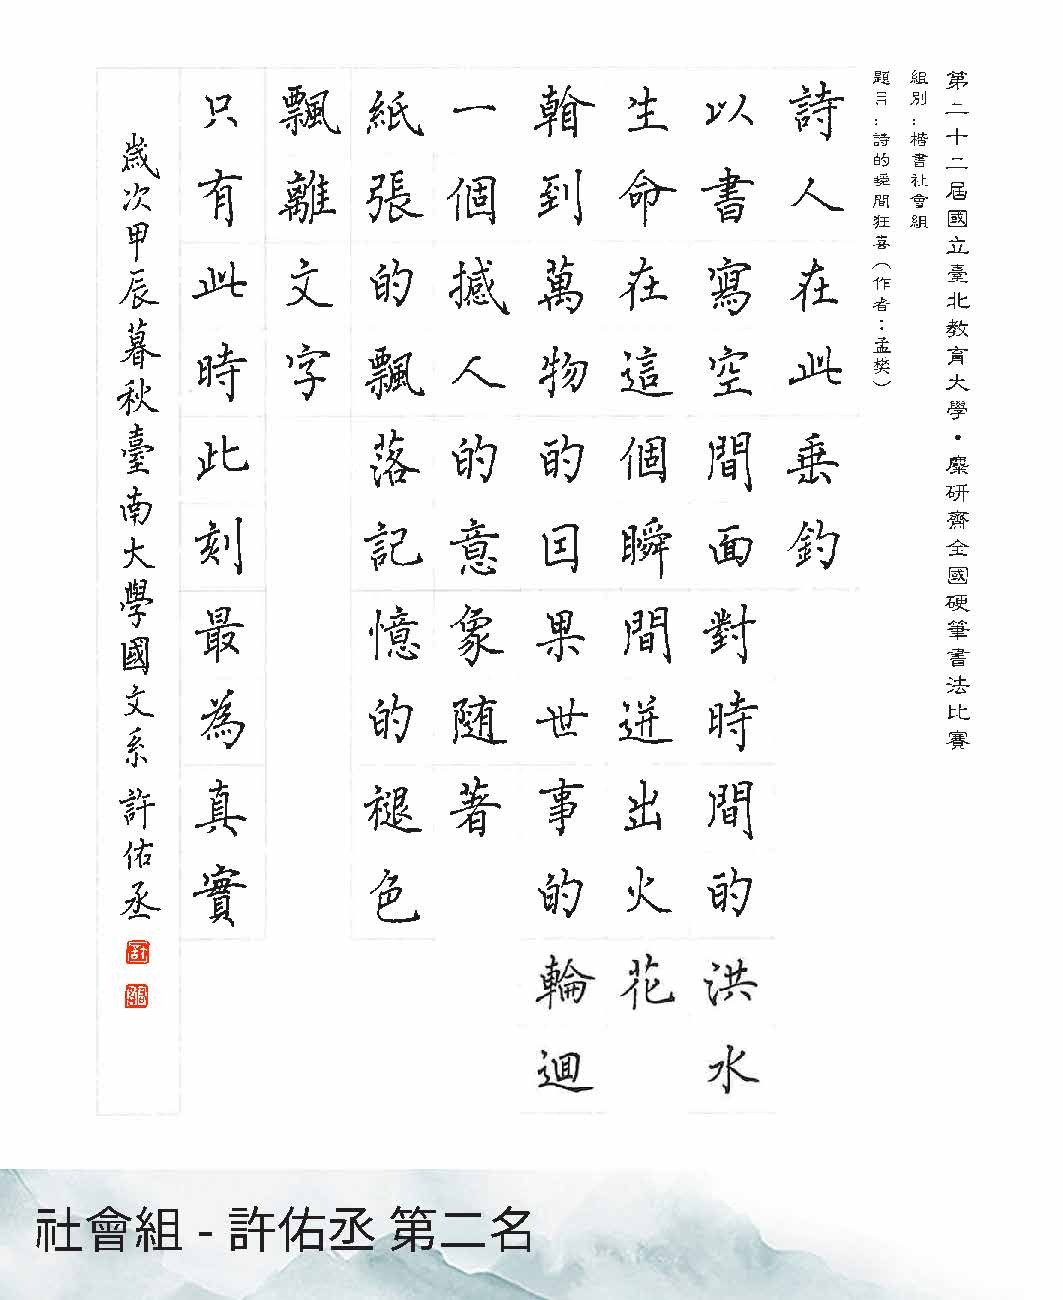 第二十二屆國立臺北教育大學・麋研齋全國硬筆書法比賽
組別：楷書社會組
題目：詩的瞬間狂喜（作者：孟樊）
詩人在此垂釣
以書寫空間面對時間的洪水
生命在這個瞬間迸出火花
到萬物的囙果世事的輪迴
一個撼人的意象随著
紙張的飄落記憶的褪色
飄離文字
只有此時此刻最為真實
歲次甲辰暮秋臺南大學國文系許佑丞
社會組 - 許佑丞 第二名